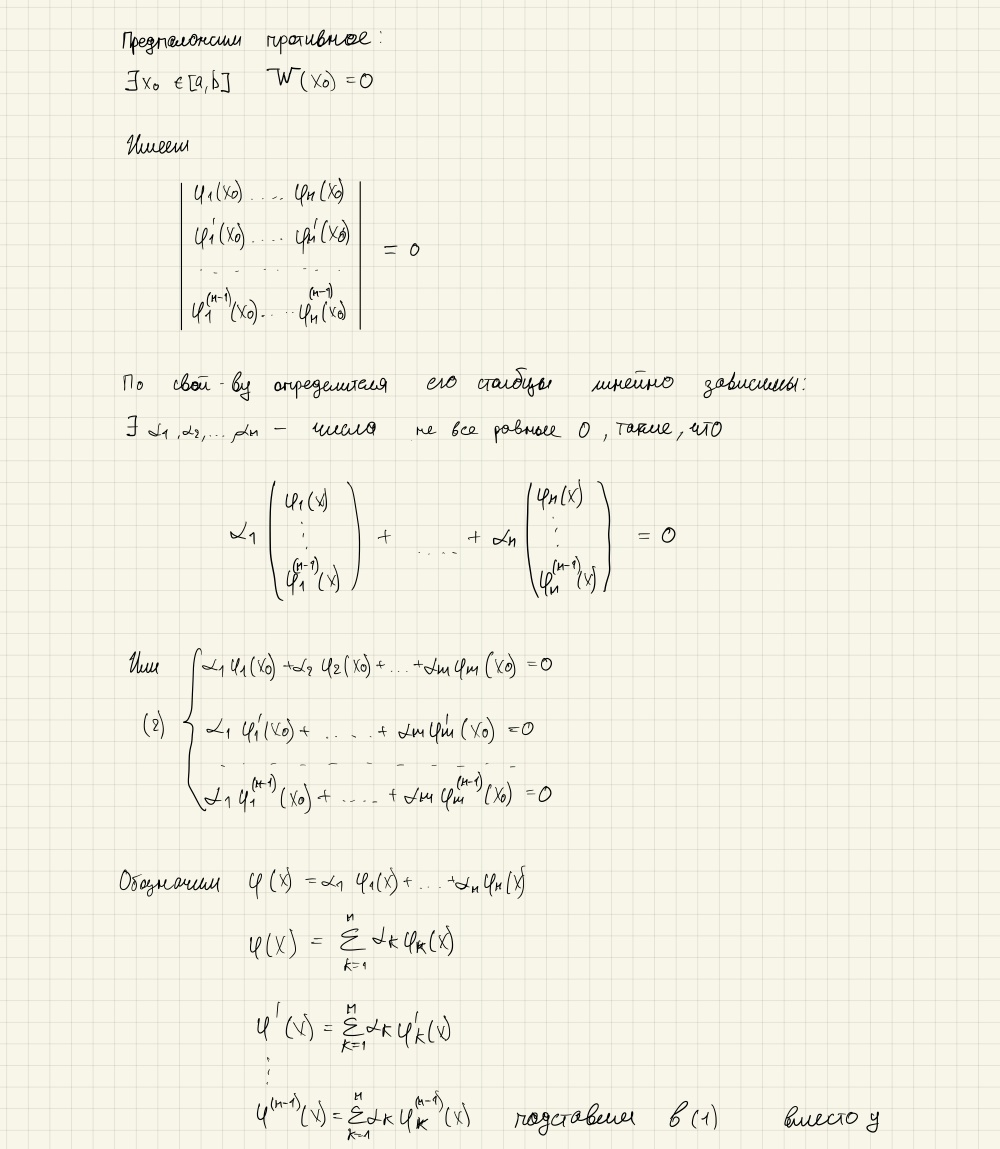 Предположим противное:
∃x₀ ∈ [a,b] W(x₀) = 0
Имеем
| φ₁(x₀) .... φₙ(x₀) |
| φ₁'(x₀) .... φₙ'(x₀) | = 0
| . . . . . . . |
| φ₁⁽ⁿ⁻¹⁾(x₀) .... φₙ⁽ⁿ⁻¹⁾(x₀) |
По свой-ву определителя его столбцы линейно зависимы:
∃ α₁, α₂, ... αₙ – числа не все равные 0, такие, что
α₁ ( φ₁(x) ⋮ φ₁⁽ⁿ⁻¹⁾(x) ) + .... + αₙ ( φₙ(x) ⋮ φₙ⁽ⁿ⁻¹⁾(x) ) = 0
Или { α₁ φ₁(x₀) + α₂ φ₂(x₀) + ... + αₘ φₘ(x₀) = 0
(2) α₁ φ₁'(x₀) + ..... + αₘ φₘ'(x₀) = 0
- - - - - - - - -
α₁ φ₁⁽ⁿ⁻¹⁾(x₀) + ..... + αₘ φₘ⁽ⁿ⁻¹⁾(x₀) = 0
Обозначим φ(x) = α₁ φ₁(x) + ... + αₙ φₙ(x)
φ(x) = ∑ₖ₌₁ⁿ αₖ φₖ(x)
φ'(x) = ∑ₖ₌₁ⁿ αₖ φₖ'(x)
⋮
φ⁽ⁿ⁻¹⁾(x) = ∑ₖ₌₁ⁿ αₖ φₖ⁽ⁿ⁻¹⁾(x) подставим в (1) вместо y